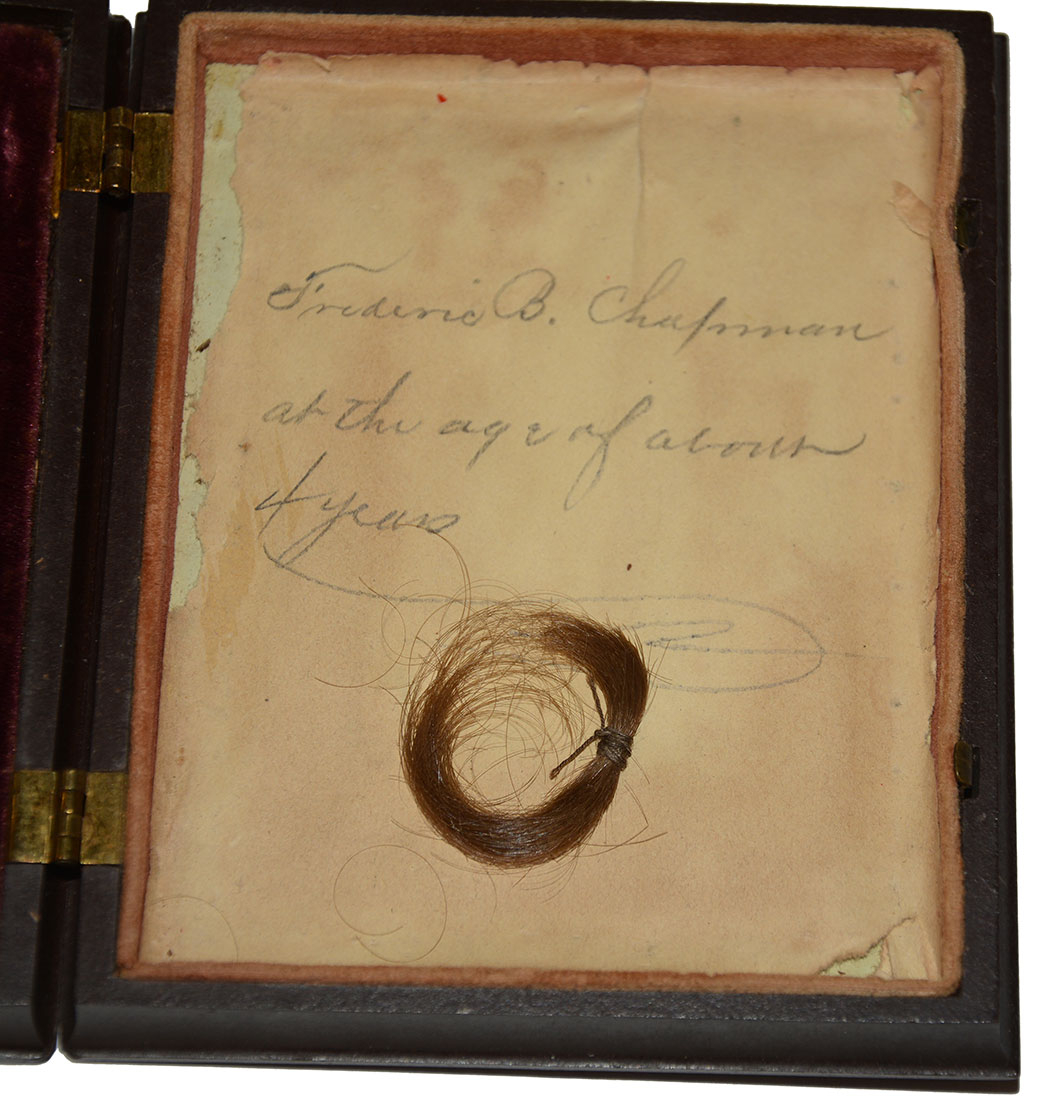 Frederic B. Chapman
at the age of about
4 years